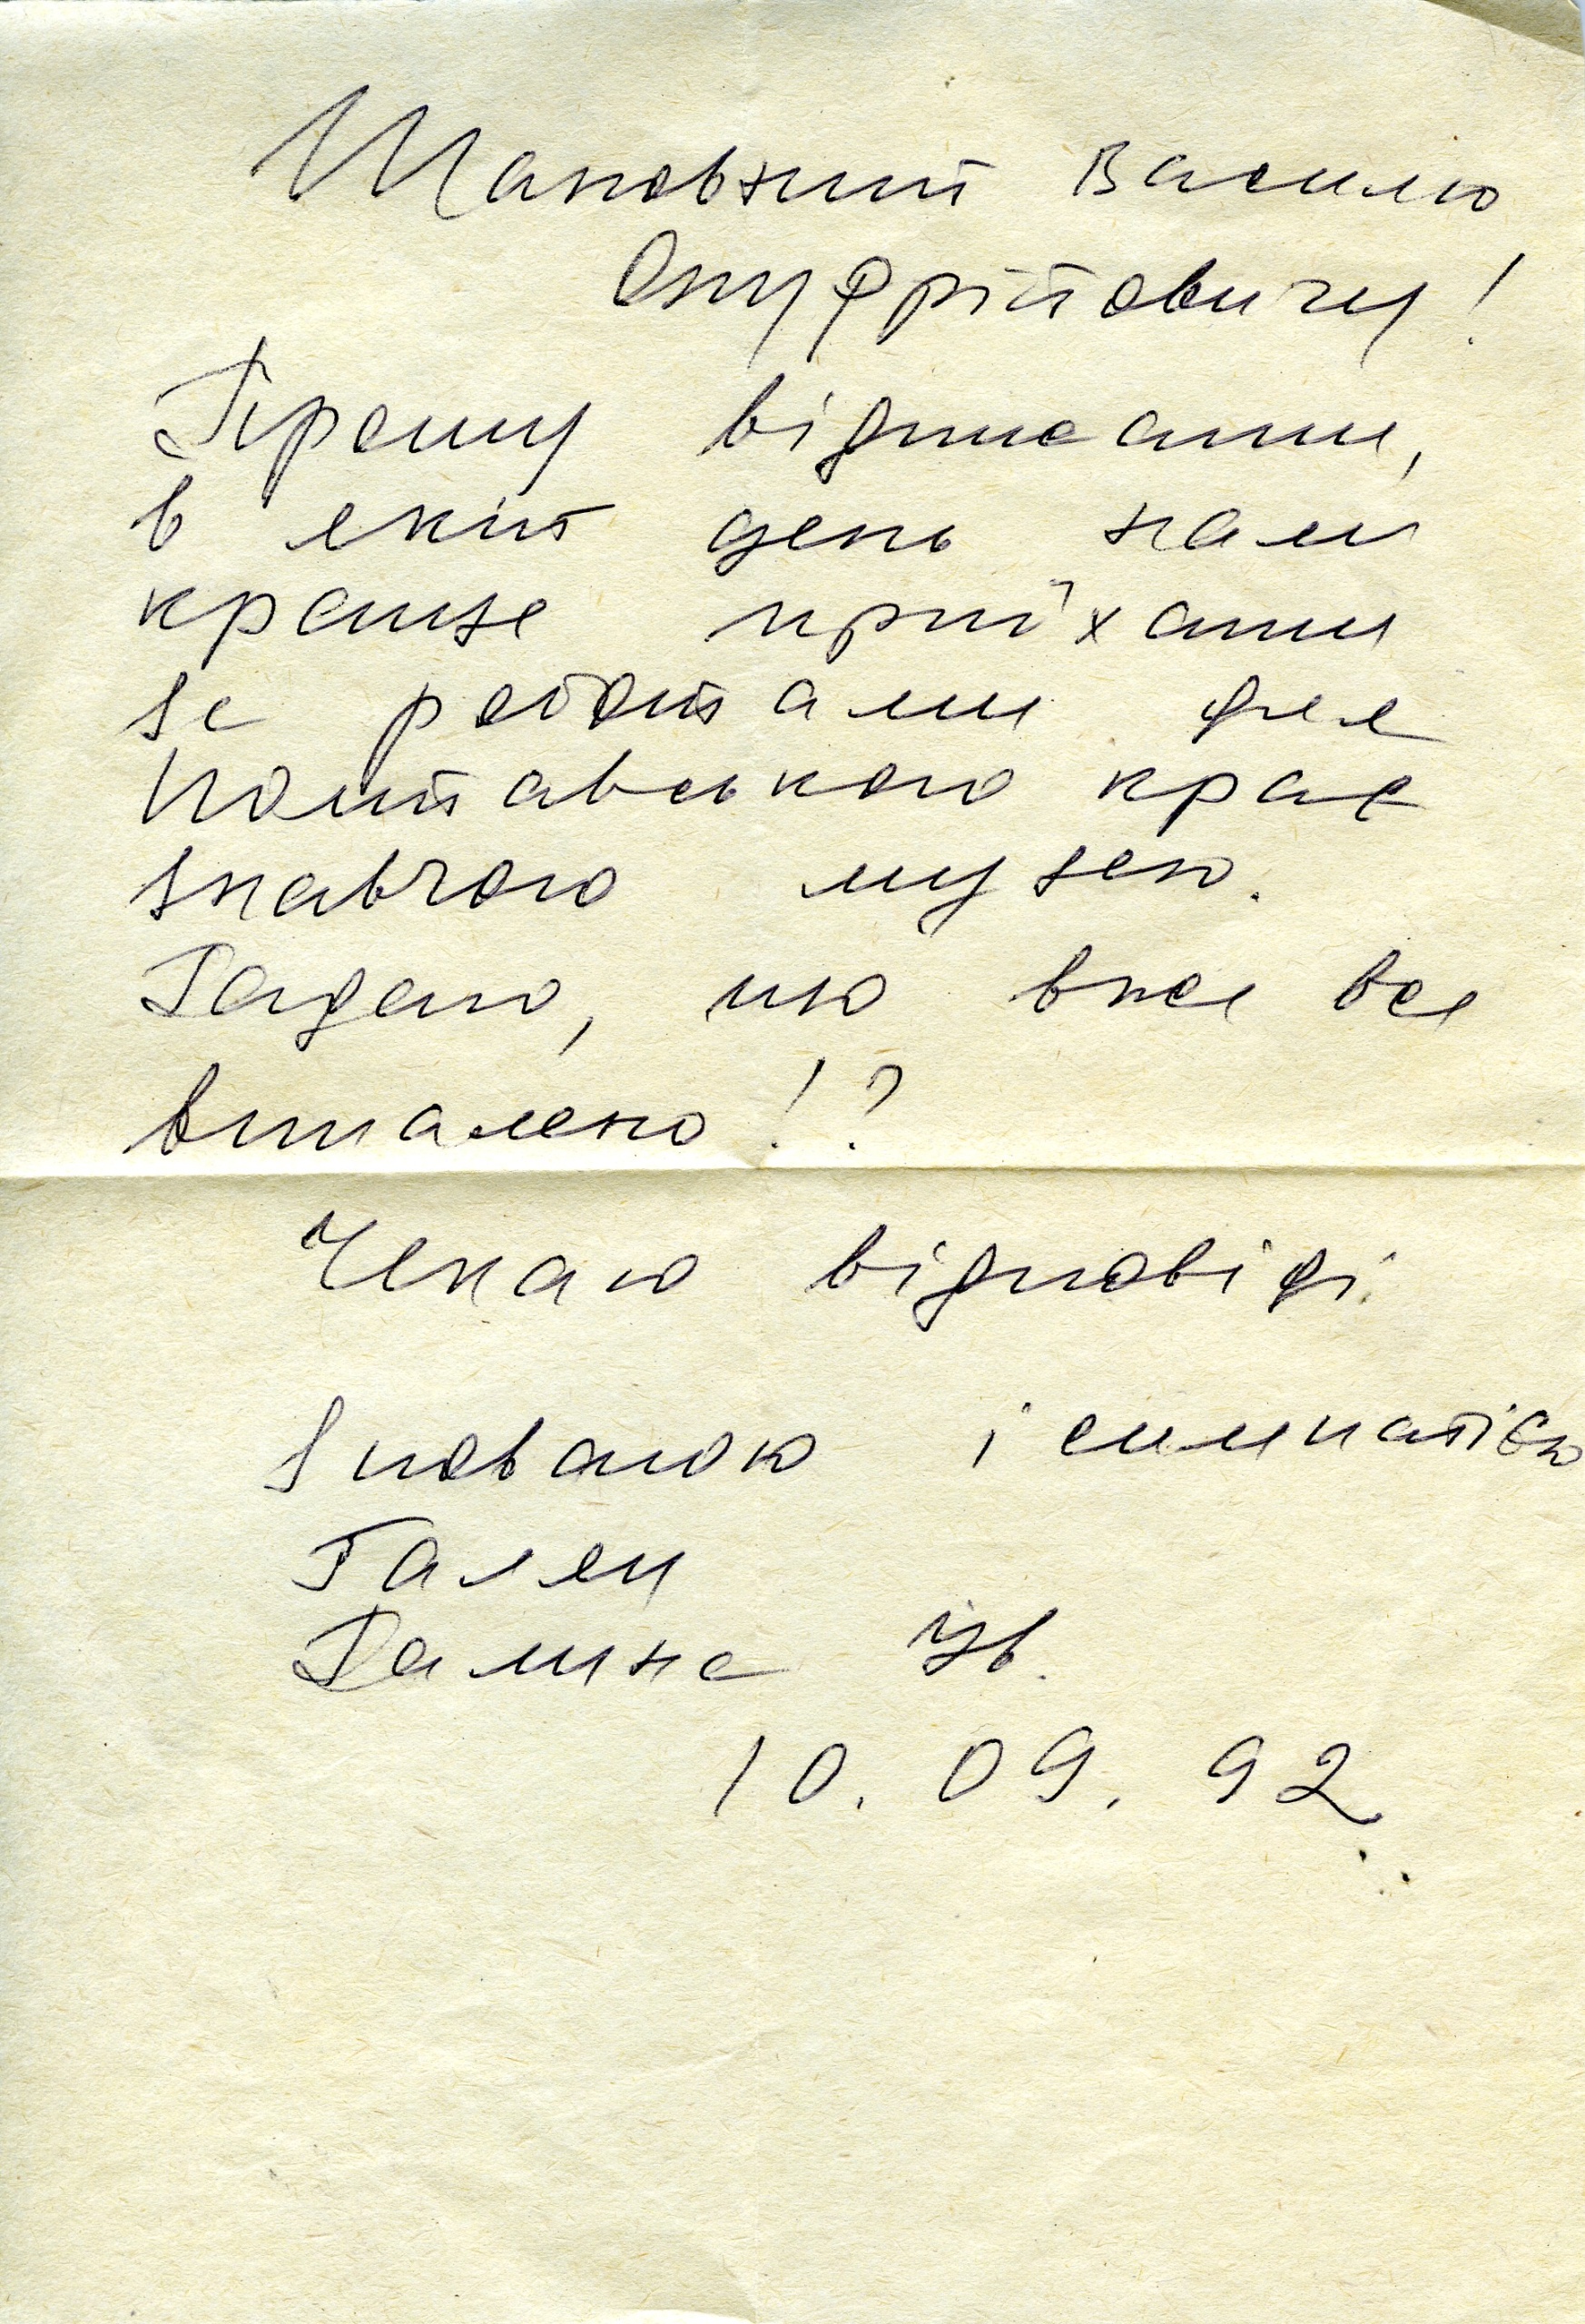 Шановний Василю
Онуфрійовичу!
Прошу відписати,
в який день нам
краще приїхати
за роботами для
Полтавського крає
знавчого музею.
Гадаю, що вже все
випалено!?
Чекаю відповіді.
З повагою і симпатією
Галян
Галина Ів.
10.09.92